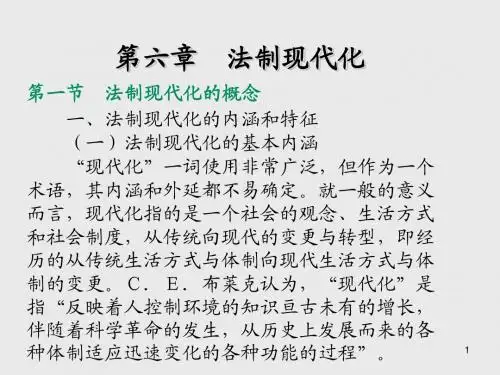 第六章　法制现代化
第一节　法制现代化的概念
一、法制现代化的内涵和特征
（一）法制现代化的基本内涵
“现代化”一词使用非常广泛，但作为一个
术语，其内涵和外延都不易确定。就一般的意义
而言，现代化指的是一个社会的观念、生活方式
和社会制度，从传统向现代的变更与转型，即经
历的从传统生活方式与体制向现代生活方式与体
制的变更。C．E．布莱克认为，“现代化”是
指“反映着人控制环境的知识亘古未有的增长，
伴随着科学革命的发生，从历史上发展而来的各
种体制适应迅速变化的各种功能的过程”。
1